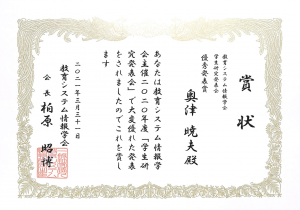 賞状
教育システム情報学会
学生研究発表会
優秀発表賞
奥津 暁夫殿
あなたは教育システム情報学
会主催二〇二〇年度「学生研
究発表会」で大変優れた発表
をされましたのでこれを賞し
ます
二〇二一年三月三十一日
教育システム情報学会
会長 柏原 昭博